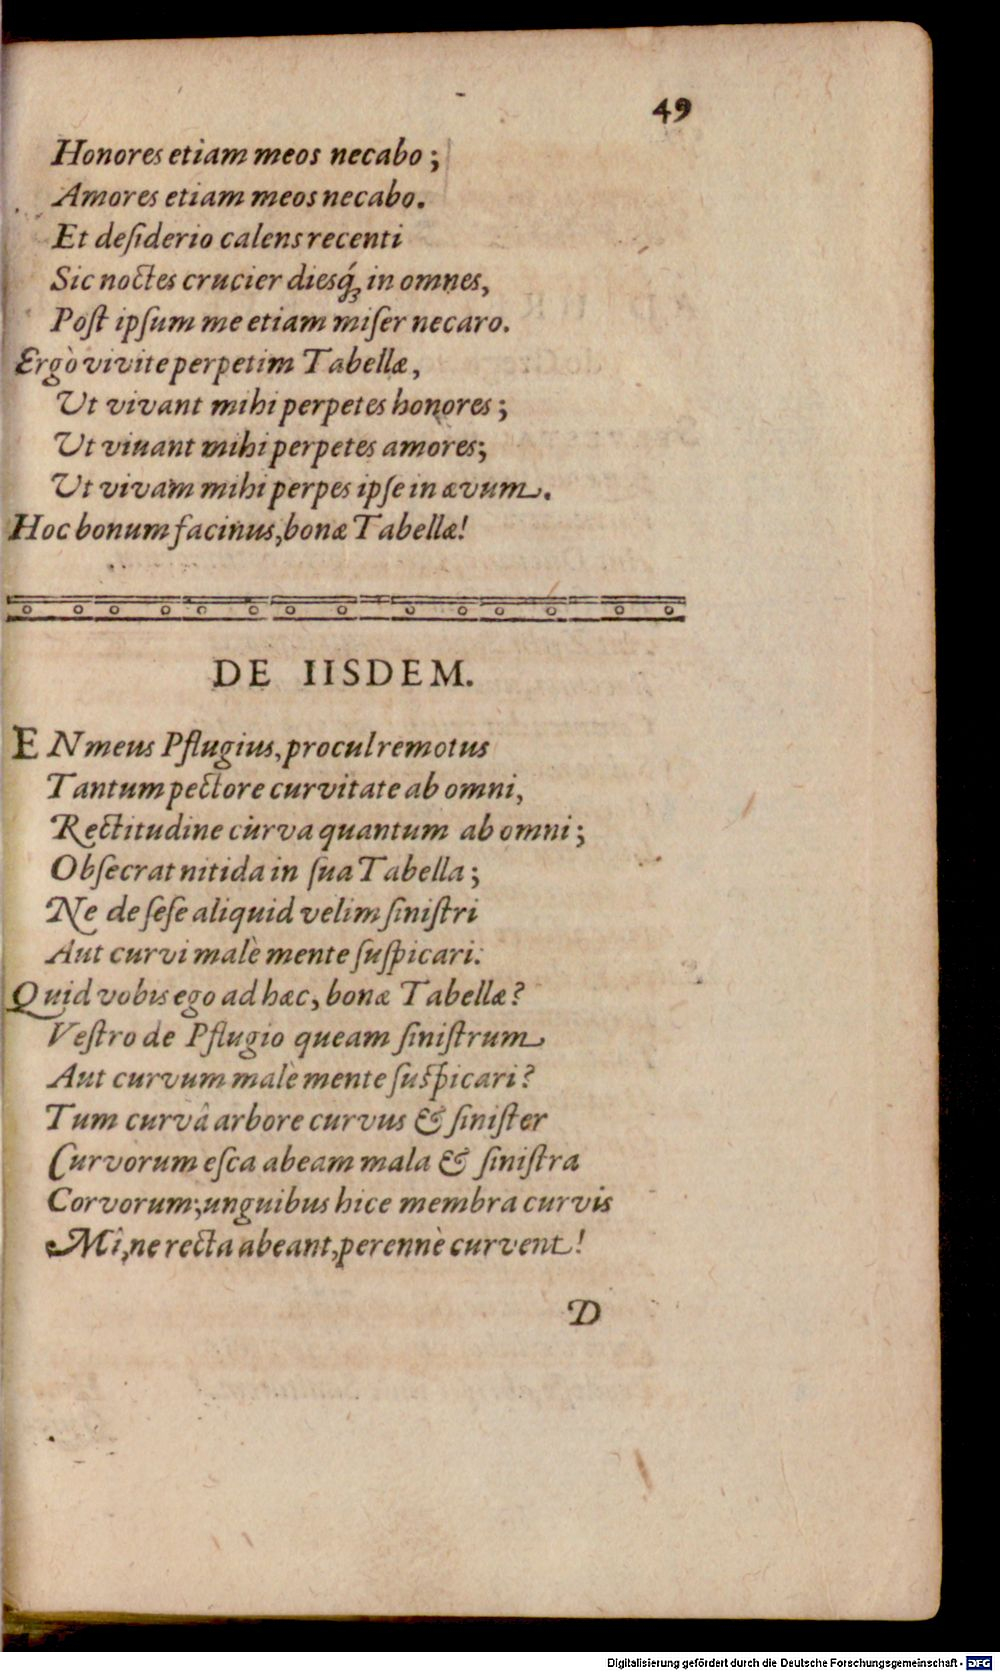 49
Honores etiam meos necabo;
Amores etiam meos necabo.
Et deſiderio calens recenti
Sic noctes crucier diesq́; in omnes,
Poſt ipſum me etiam miſer necaro.
Ergò vivite perpetim Tabellæ,
Ut vivant mihi perpetes honores;
Ut viuant mihi perpetes amores;
Ut vivam mihi perpes ipſe in ævum.
Hoc bonum facinus, bonæ Tabellæ!
DE IISDEM.
EN meus Pflugius, procul remotus
Tantum pectore curvitate ab omni,
Rectitudine curva quantum ab omni;
Obſecrat nitida in ſua Tabella;
Ne de ſeſe aliquid velim ſiniſtri
Aut curvi malè mente ſuſpicari.
Quid vobis ego ad hæc, bonæ Tabellæ?
Veſtro de Pflugio queam ſiniſtrum
Aut curvum malè mente ſuſpicari?
Tum curvâ arbore curvus & ſiniſter
Curvorum eſca abeam mala & ſiniſtra
Corvorum; unguibus hice membra curvis
Mî, ne recta abeant, perennè curvent!
D
Digitalisierung gefördert durch die Deutsche Forschungsgemeinschaft - DFG